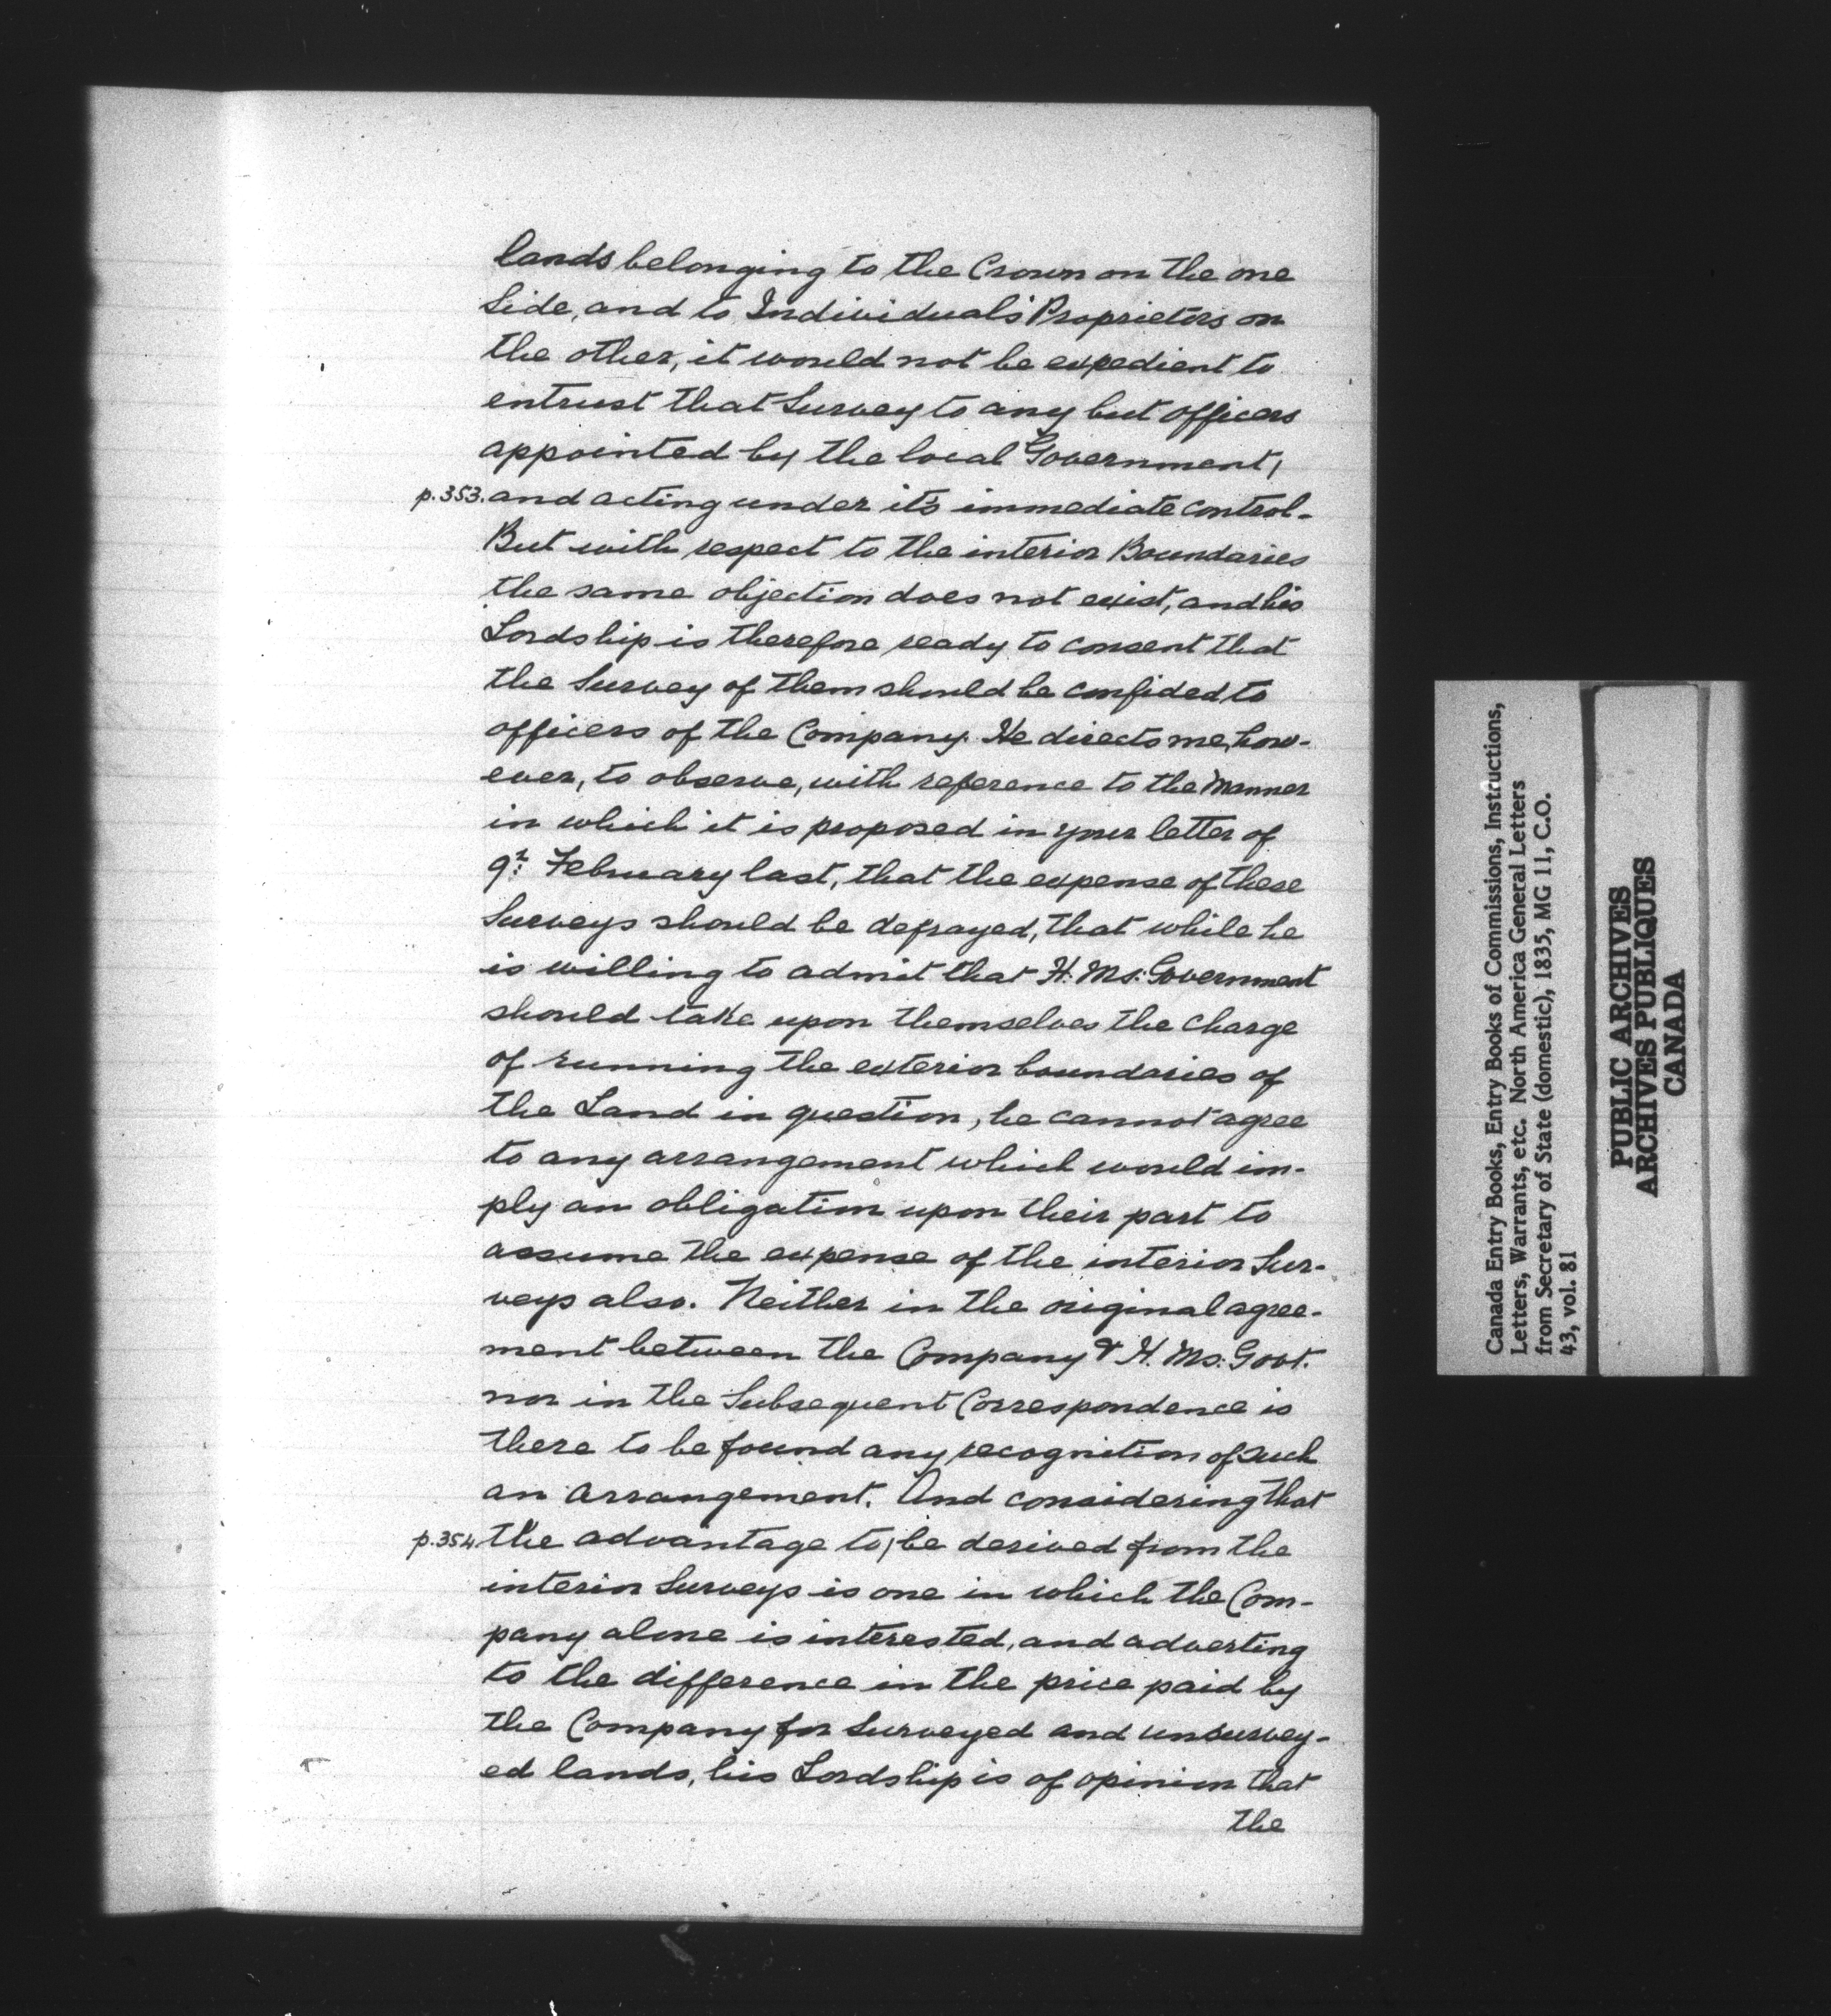 lands belonging to the Crown on the one
Side, and to Individuals' Proprietors on
the other, it would not be expedient to
entrust that Survey to any but officers
appointed by the local Government,
p.353. and acting under it's immediate control.
But with respect to the interior Boundaries
the same objection does not exist, and his
Lordship is therefore ready to consent that
the Survey of them should be confided to
officers of the Company. He directs me, how-
ever, to observe, with reference to the manner
in which it is proposed in your letter of
9th February last, that the expense of these
Surveys should be defrayed, that while he
is willing to admit that H. Ms: Government
should take upon themselves the charge
of running the exterior boundaries of
the Land in question, he cannot agree
to any arrangement which would im-
ply an obligation upon their part to
assume the expense of the interior Sur-
veys also. Neither in the original agree-
ment between the Company & H. Ms: Govt.
nor in the Subsequent Correspondence is
there to be found any recognition of such
an arrangement. And considering that
p.354. the advantage to be derived from the
interior Surveys is one in which the Com-
pany alone is interested, and adverting
to the difference in the price paid by
the Company for Surveyed and unsurvey-
ed lands, his Lordship is of opinion that
the
Canada Entry Books, Entry Books of Commissions, Instructions,
Letters, Warrants, etc. North America General Letters
from Secretary of State (domestic), 1835, MG 11, C.O.
43, vol. 81
PUBLIC ARCHIVES
ARCHIVES PUBLIQUES
CANADA